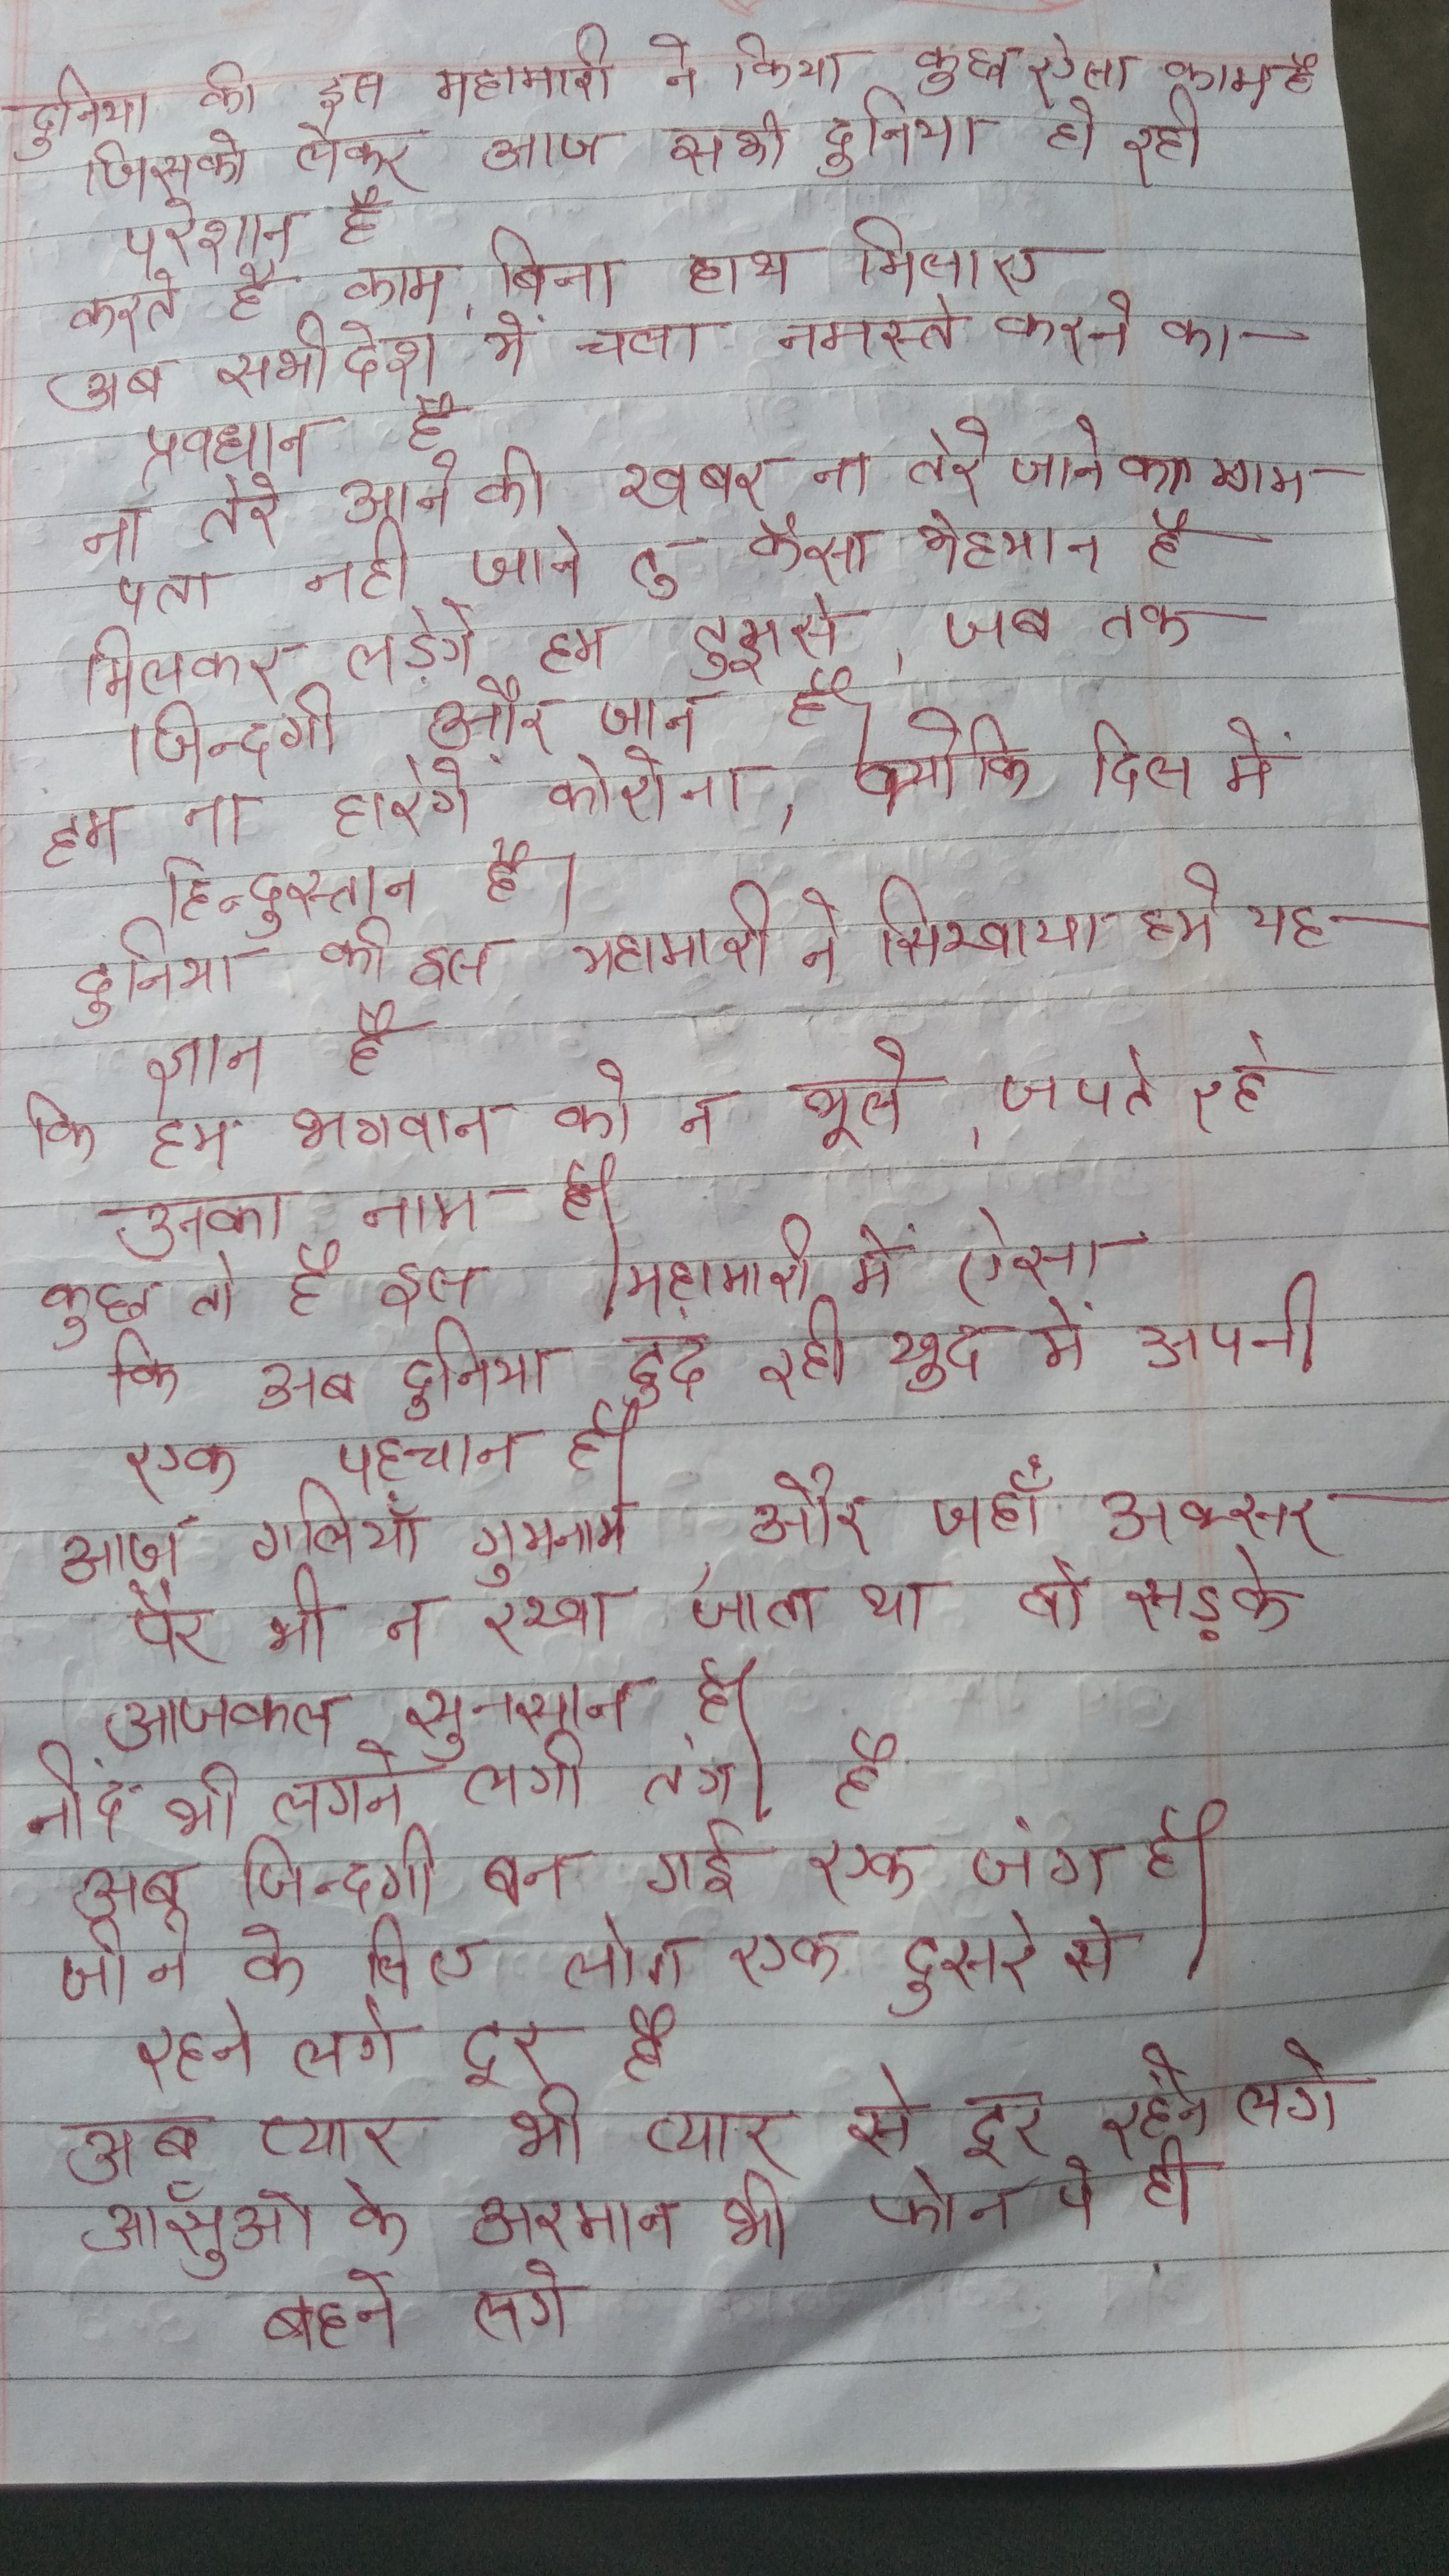 दुनिया की इस महामारी ने किया कुछ ऐसा काम है
जिसको लेकर आज सभी दुनिया हो रही
परेशान है
करते है काम, बिना हाथ मिलाए
अब सभी देश में चला नमस्ते करने का
प्रवधान है
ना तेरे आने की खबर ना तेरे जाने का
पता नही जाने तु कैसा मेहमान है
मिलकर लड़ेगे हम तुझसे, जब तक
जिन्दगी और जान है।
हम ना हारेगें कोरोना, क्योकि दिल में
हिन्दुस्तान है।
दुनिया की इस महामारी ने सिखाया हमे यह
ज्ञान है
कि हम भगवान को न भूले, जपते रहे
उनका नाम है।
कुछ तो है इस महामारी में ऐसा
कि अब दुनिया ढुढ रही खुद में अपनी
एक पहचान है।
आज गलियाँ गुमनाम, और जहाँ अक्सर
पैर भी न रखा जाता था वो सड़के
आजकल सुनसान है।
नींद भी लगने लगी तंग है
अब जिन्दगी बन गई एक जंग है।
जीने के लिए लोग एक दुसरे से
रहने लगे दूर है
अब प्यार भी प्यार से दूर रहने लगे
आसुँओ के अरमान भी फोन पे ही
बहने लगे